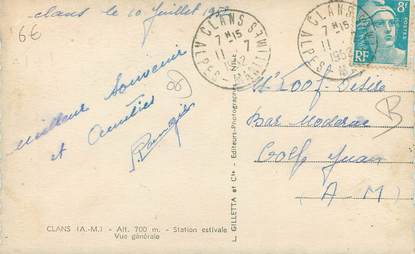 clans le 10 juillet
6€
CLANS
7 H 15
11 - 7
1952
ALPES MARITIMES
CLANS
7 H 15
11
1952
ALPES MAR
8F
RF
meilleur souvenir
et amitiés
B
Bar Moderne
Golfe Juan
A M
L. GILLETTA et Cie - Editeurs-Photographes - NICE
CLANS (A.-M.) - Alt. 700 m. - Station estivale
Vue générale